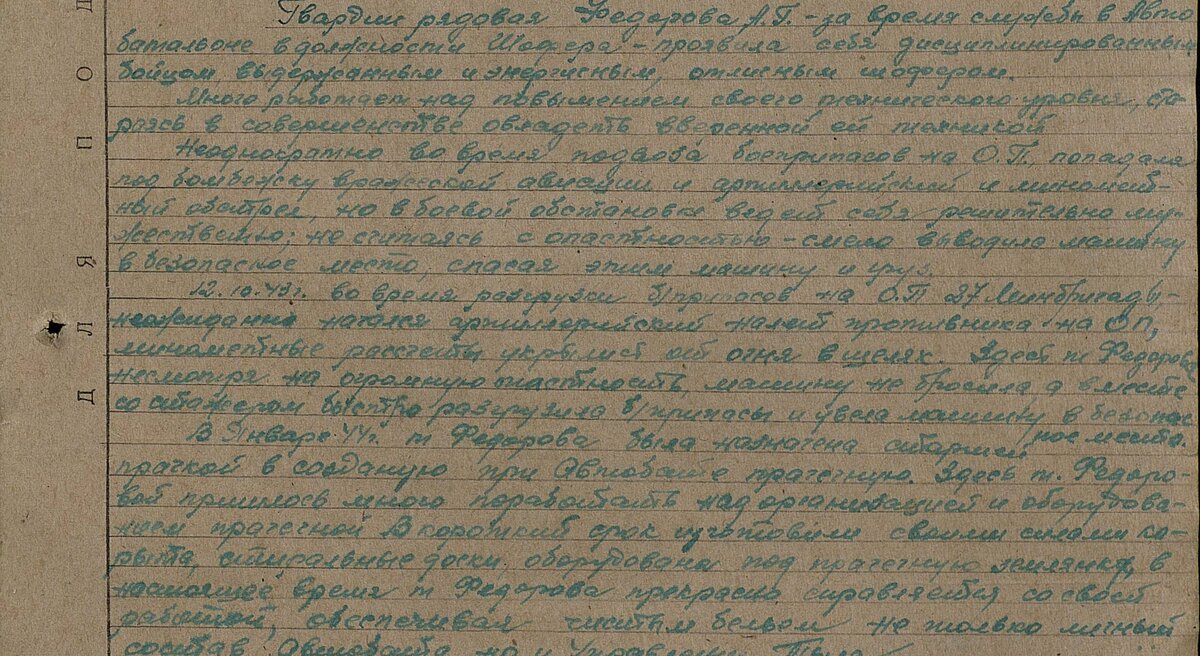 Гвардии рядовая Федорова А.Г. - за время службы в Авто
батальоне в должности Шофера - проявила себя дисциплинированным
бойцом выдержанным и энергисным, отлисным шофером.
Много работает над повышением своего технического уровня, ста-
раясь в совершенстве овладеть вверенной ей техникой
Неоднократно во время подвоза боеприпасов на О.П. попадала
под бомбежку вражеской авиации и артиллерийский и миномет-
ный обстрел, но в боевой обстановке ведет себя решительно му-
жественно; не считаясь с опастностью - смело выводила машину
в безопасное место, спасая этим машину и груз.
12.10.43г. во время разгрузки б/припасов на О.П 27 Минбригады -
неожиданно начался артиллерийский налет противника на ОП,
минометные рассчеты укрылист от огня в щелях. Здест т Федорова
несмотря на огромную опастность, машину не бросила, а вместе
со стажером быстро разгрузила б/припасы и увела машину в безопас
ное место.
В Январе 44г. т Федорова была назначена старшей
прачкой в созданую при Автобате прачечную. Здесь т. Федоро-
вой пришлось много поработать над организацией и оборудова-
нием прачечной В короткий срок изготовили своими силами ко-
рыта, стиральные доски оборудована под прачечную землянка, в
настоящее время т Федорова прекрасно справляется со своей
работой, обеспечивая чистым бельем не только личный
состав Автобата но и Управлени Тыла